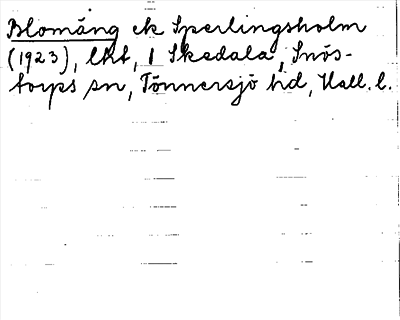 Blomäng ek Sperlingsholm
(1923), lht, 1 Skedala, Snös-
torps sn, Tönnersjö hd, Hall. l.